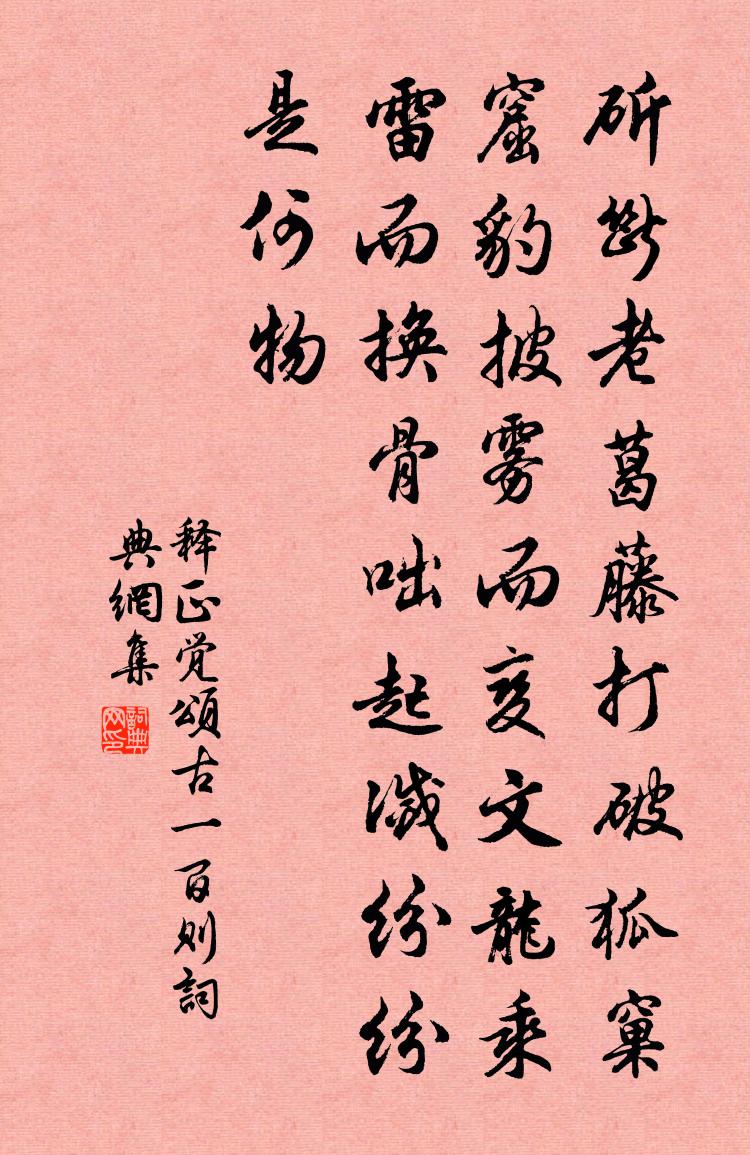 斫断老葛藤打破狐窠
窟豹披雾而变文龍乘
雷而换骨咄起滅纷纷
是何物
释正觉頌古一百则詞
典網集
詞典网印